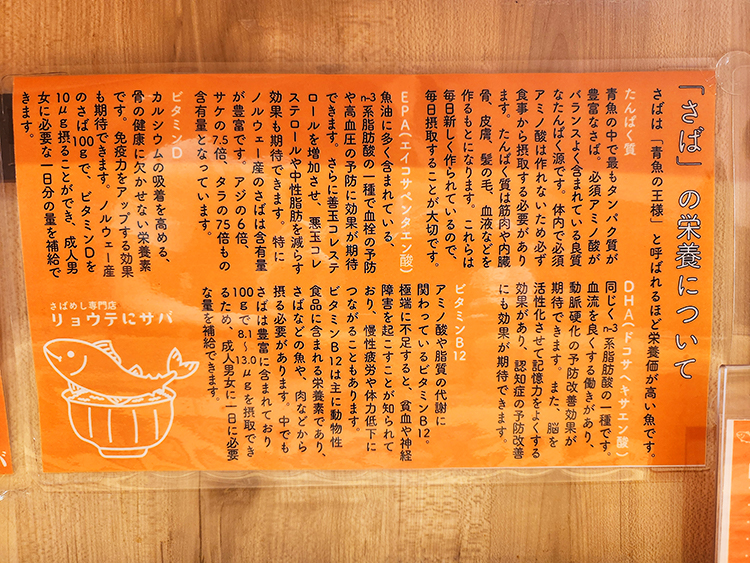 「さば」の栄養について
さばは「青魚の王様」と呼ばれるほど栄養価が高い魚です。
たんぱく質
青魚の中で最もタンパク質が
豊富なさば。必須アミノ酸が
バランスよく含まれている良質
なたんぱく源です。体内で必須
アミノ酸は作れないため必ず
食事から摂取する必要があり
ます。たんぱく質は筋肉や内臓
骨、皮膚、髪の毛、血液などを
作るもとになります。これらは
毎日新しく作られているので、
毎日摂取することが大切です。
EPA(エイコサペンタエン酸)
魚油に多く含まれている、
n-3系脂肪酸の一種で血栓の予防
や高血圧の予防に効果が期待
できます。さらに善玉コレステ
ロールを増加させ、悪玉コレ
ステロールや中性脂肪を減らす
効果も期待できます。特に
ノルウェー産のさばは含有量
が豊富です。アジの6倍、
サケの7.5倍、タラの75倍もの
含有量となっています。
ビタミンD
カルシウムの吸着を高める、
骨の健康に欠かせない栄養素
です。免疫力をアップする効果
も期待できます。ノルウェー産
のさば100gで、ビタミンDを
10μg摂ることができ、成人男
女に必要な一日分の量を補給で
きます。
DHA(ドコサヘキサエン酸)
同じくn-3系脂肪酸の一種です。
血流を良くする働きがあり、
動脈硬化の予防改善効果が
期待できます。また、脳を
活性化させて記憶力をよくする
効果があり、認知症の予防改善
にも効果が期待できます。
ビタミンB12
アミノ酸や脂質の代謝に
関わっているビタミンB12。
極端に不足すると、貧血や神経
障害を起こすことが知られて
おり、慢性疲労や体力低下に
つながることもあります。
ビタミンB12は主に動物性
食品に含まれる栄養素であり、
さばなどの魚や、肉などから
摂る必要があります。中でも
さばは豊富に含まれており
100gで8.1〜13.0μgを摂取でき
るため、成人男女に一日に必要
な量を補給できます。
さばめし専門店
リョウテニサバ